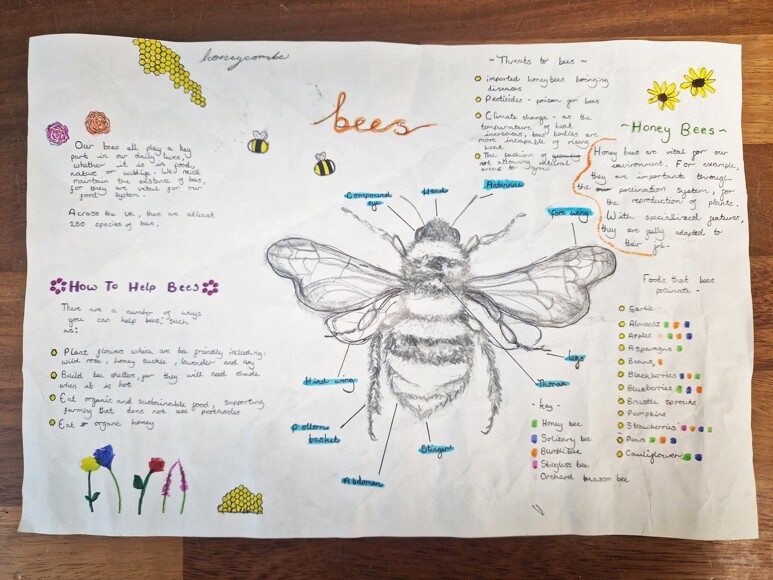 honeycombs
bees
Our bees all play a key
part in our daily lives,
whether it is in food,
natur or wildlife. We must
maintain the existance of bees,
for they are vital for our
food system.
Across the UK, there are atleast
250 species of bees.
How To Help Bees
There are a number of ways
you can help bees, such
as:
Plant flowers which are bee friendly including:
wild rose, honey suckle, lavender and ivy
Build bee shelters, for they will need shade
when it is hot
Eat organic and sustainable food, supporting
farming that does not use pesticides
Eat organic honey
~Threats to bees~
imported honeybees bringing
diseases
Pesticides - poison for bees
Climate change - as the
temperature of heat
increases, bees bodies are
more incapable of rising
heat
The fashion of
not allowing natural
areas to grow
~Honey Bees~
Honey bees are vital for our
environment. For example,
they are important through
the pollination system, for
the reproduction of plants.
With specialized features,
they are fully adapted to
their job.
Compound
eye
Head
Antennae
Fore wing
Hind wing
Pollen
basket
Abdomen
Stinger
Thorax
legs
-key-
Honey bee
Solitary bee
Bumblebee
Stingless bee
Orchard mason bee
Foods that bees
pollinate -
Garlic
Almonds
Apples
Asparagus
Beans
Blackberries
Blueberries
Brussle sprouts
Pumpkins
Strawberries
Pears
Cauliflower